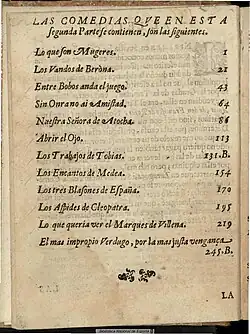 LAS COMEDIAS QVE EN ESTA
segunda Parte se contienen, son las siguientes.
Lo que son Mugeres. 1
Los Vandos de Berona. 21
Entre Bobos anda el juego. 43
Sin Onra no ai Amistad. 64
Nuestra Señora de Atocha. 86
Abrir el Ojo. 113
Los Trabajos de Tobias. 131.B.
Los Encantos de Medea. 154
Los tres Blasones de España. 170
Los Aspides de Cleopatra. 195
Lo que queria ver el Marques de Villena. 219
El mas impropio Verdugo, por la mas justa vengança
245.B.
LA